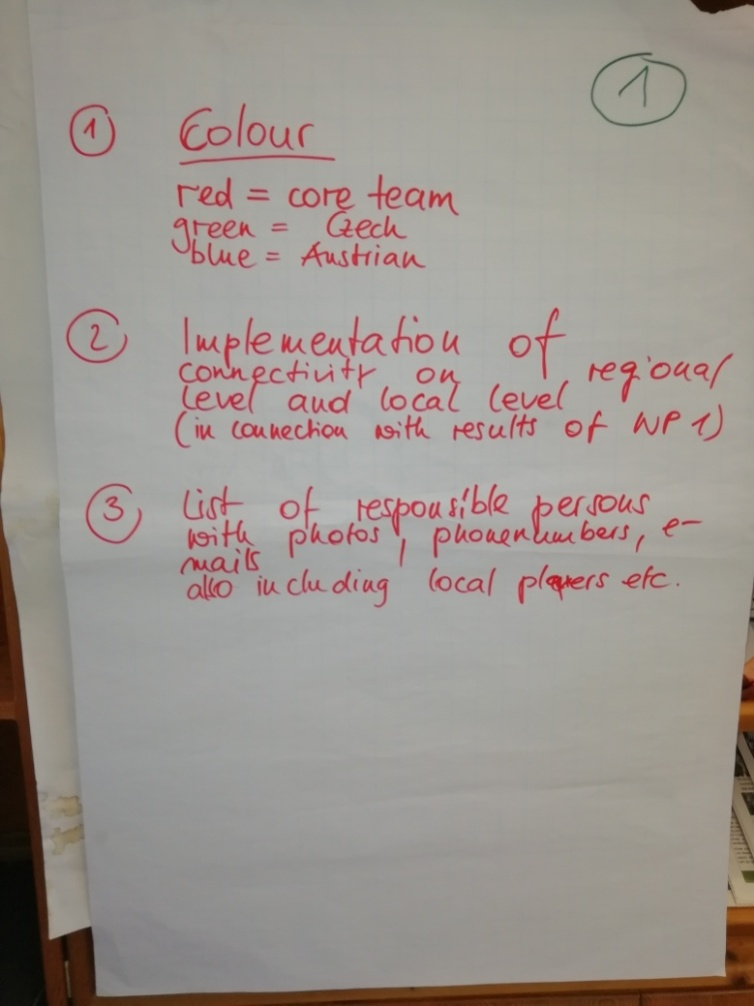 1
1 Colour
red = core team
green = Czech
blue = Austrian
2 Implementation of
connectivity on regional
level and local level
(in connection with results of WP 1)
3 List of responsible persons
with photos, phonenumbers, e-
mails
also including local players etc.